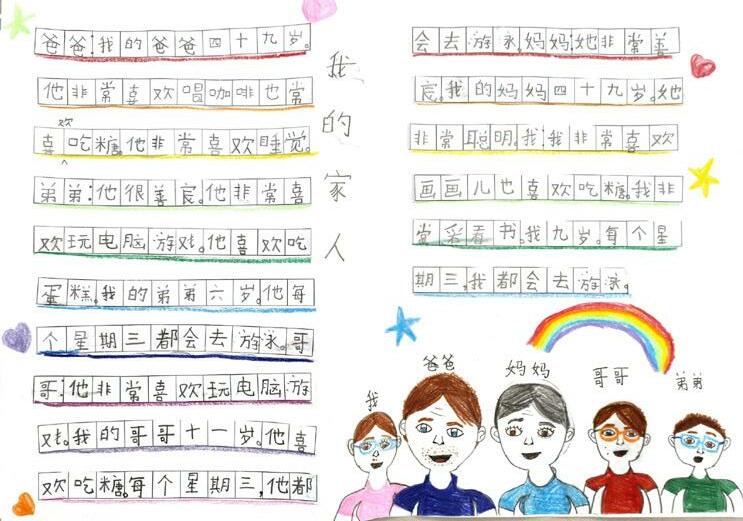 我的家人
爸爸:我的爸爸四十九岁。
他非常喜欢唱咖啡也常
喜欢吃糖。他非常喜欢睡觉。
弟弟:他很善宸。他非常喜
欢玩电脑游戏。他喜欢吃
蛋糕。我的弟弟六岁。他每
个星期三都会去游泳。哥
哥:他非常喜欢玩电脑游
戏。我的哥哥十一岁。他喜
欢吃糖。每个星期三,他都
会去游泳。妈妈:她非常善
宸。我的妈妈四十九岁。她
非常聪明。我:我非常喜欢
画画儿也喜欢吃糖。我非
常采看书。我九岁。每个星
期三,我都会去游泳。
我
爸爸
妈妈
哥哥
弟弟